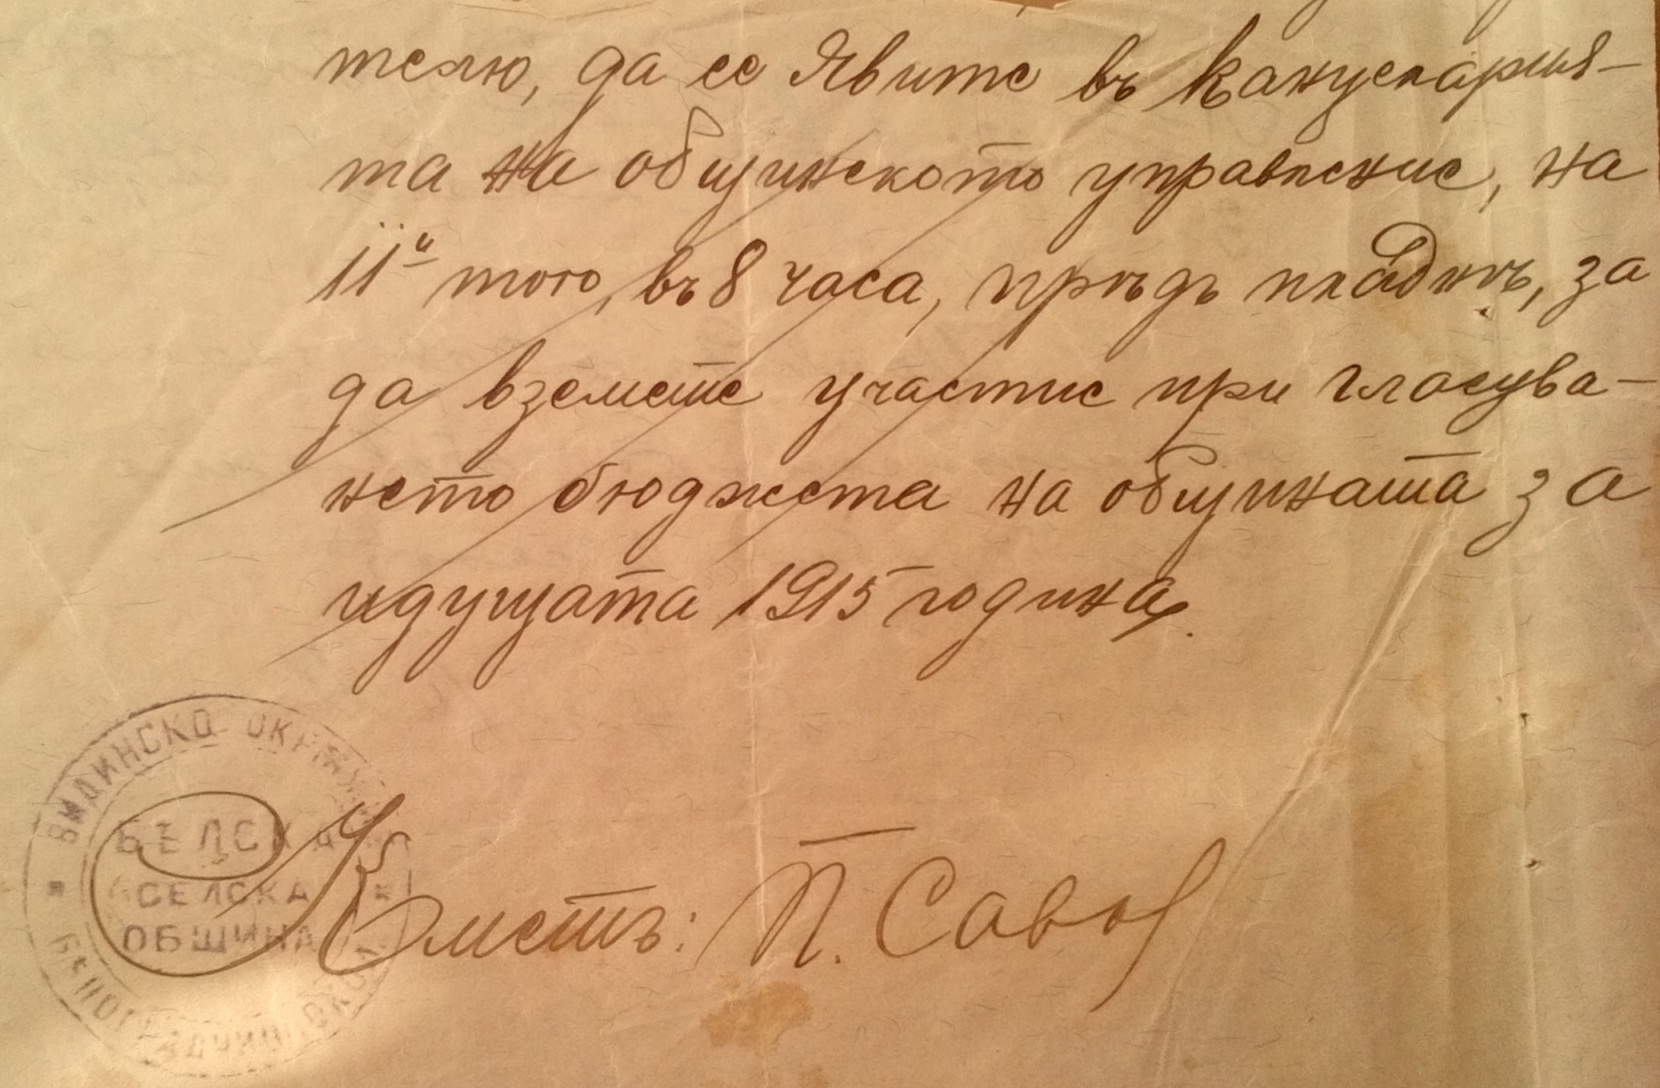 телю, да се явите въ канцелария-
та на общинското управление, на
11й того, въ 8 часа, прѣдъ пладнѣ, за
да вземете участие при гласува-
нето бюджета на общината за
идущата 1915 година.
ВИДИНСКО ОКРѪЖ
БѢЛСКА
СЕЛСКА
ОБЩИНА
Кметъ: П. Савов